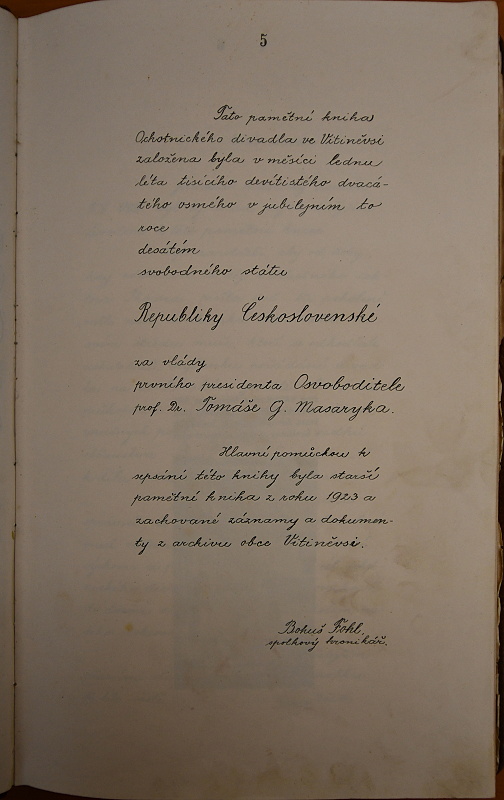 5
Tato pamětní kniha
Ochotnického divadla ve Vitiněvsi
založena byla v měsíci lednu
léta tisícího devítistého dvacá-
tého osmého v jubilejním to
roce
desátém
svobodného státu
Republiky Československé
za vlády
prvního presidenta Osvoboditele
prof. Dr. Tomáše G. Masaryka.
Hlavní pomůckou k
sepsání této knihy byla starší
pamětní kniha z roku 1923 a
zachované záznamy a dokumen-
ty z archivu obce Vitiněvsi.
Bohuš Fohl,
spolkový kronikář.